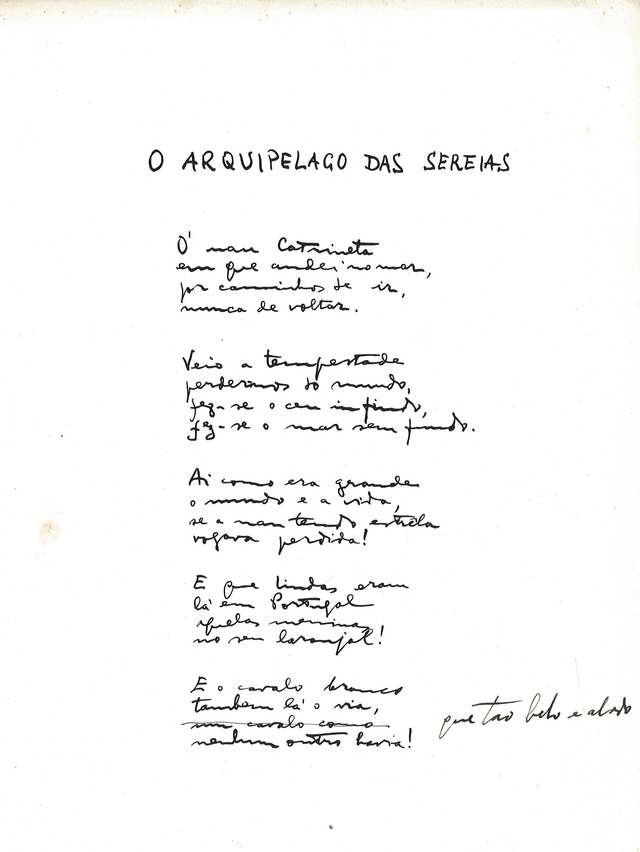 O ARQUIPELAGO DAS SEREIAS
Ó nau Catrineta
em que andei no mar,
por caminhos de ir,
nunca de voltar.
Veio a tempestade
perdermos do mundo,
fez-se o ceu infindo,
fez-se o mar sem fundo.
Ai como era grande
o mundo e a vida,
se a nau tendo estrêla
vogava perdida!
E que lindas eram
lá em Portugal
aquelas meninas
no seu laranjal!
E o cavalo branco
tambem lá o via,
um cavalo como
que tão belo e alado
nenhum outro havia!